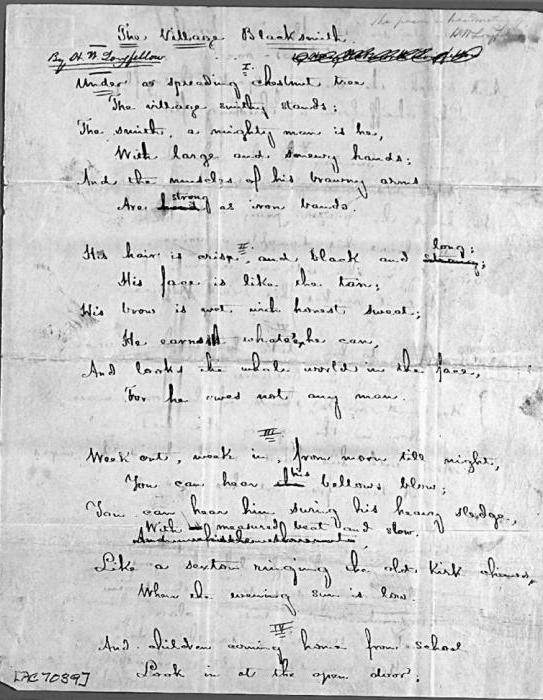 The Village Blacksmith.
By H. W. Longfellow
I.
Under a spreading chestnut tree
The village smithy stands;
The smith, a mighty man is he,
With large and sinewy hands;
And the muscles of his brawny arms
Are strong as iron bands.
II
His hair is crisp, and black and long;
His face is like the tan;
His brow is wet with honest sweat;
He earns whate'er he can,
And looks the whole world in the face,
For he owes not any man.
III
Week out, week in, from morn till night,
You can hear his bellows blow;
You can hear him swing his heavy sledge,
With measured beat and slow.
Like a sexton ringing the old kirk chimes,
When the evening sun is low.
IV
And children coming home from school
Look in at the open door;
[AC7089]